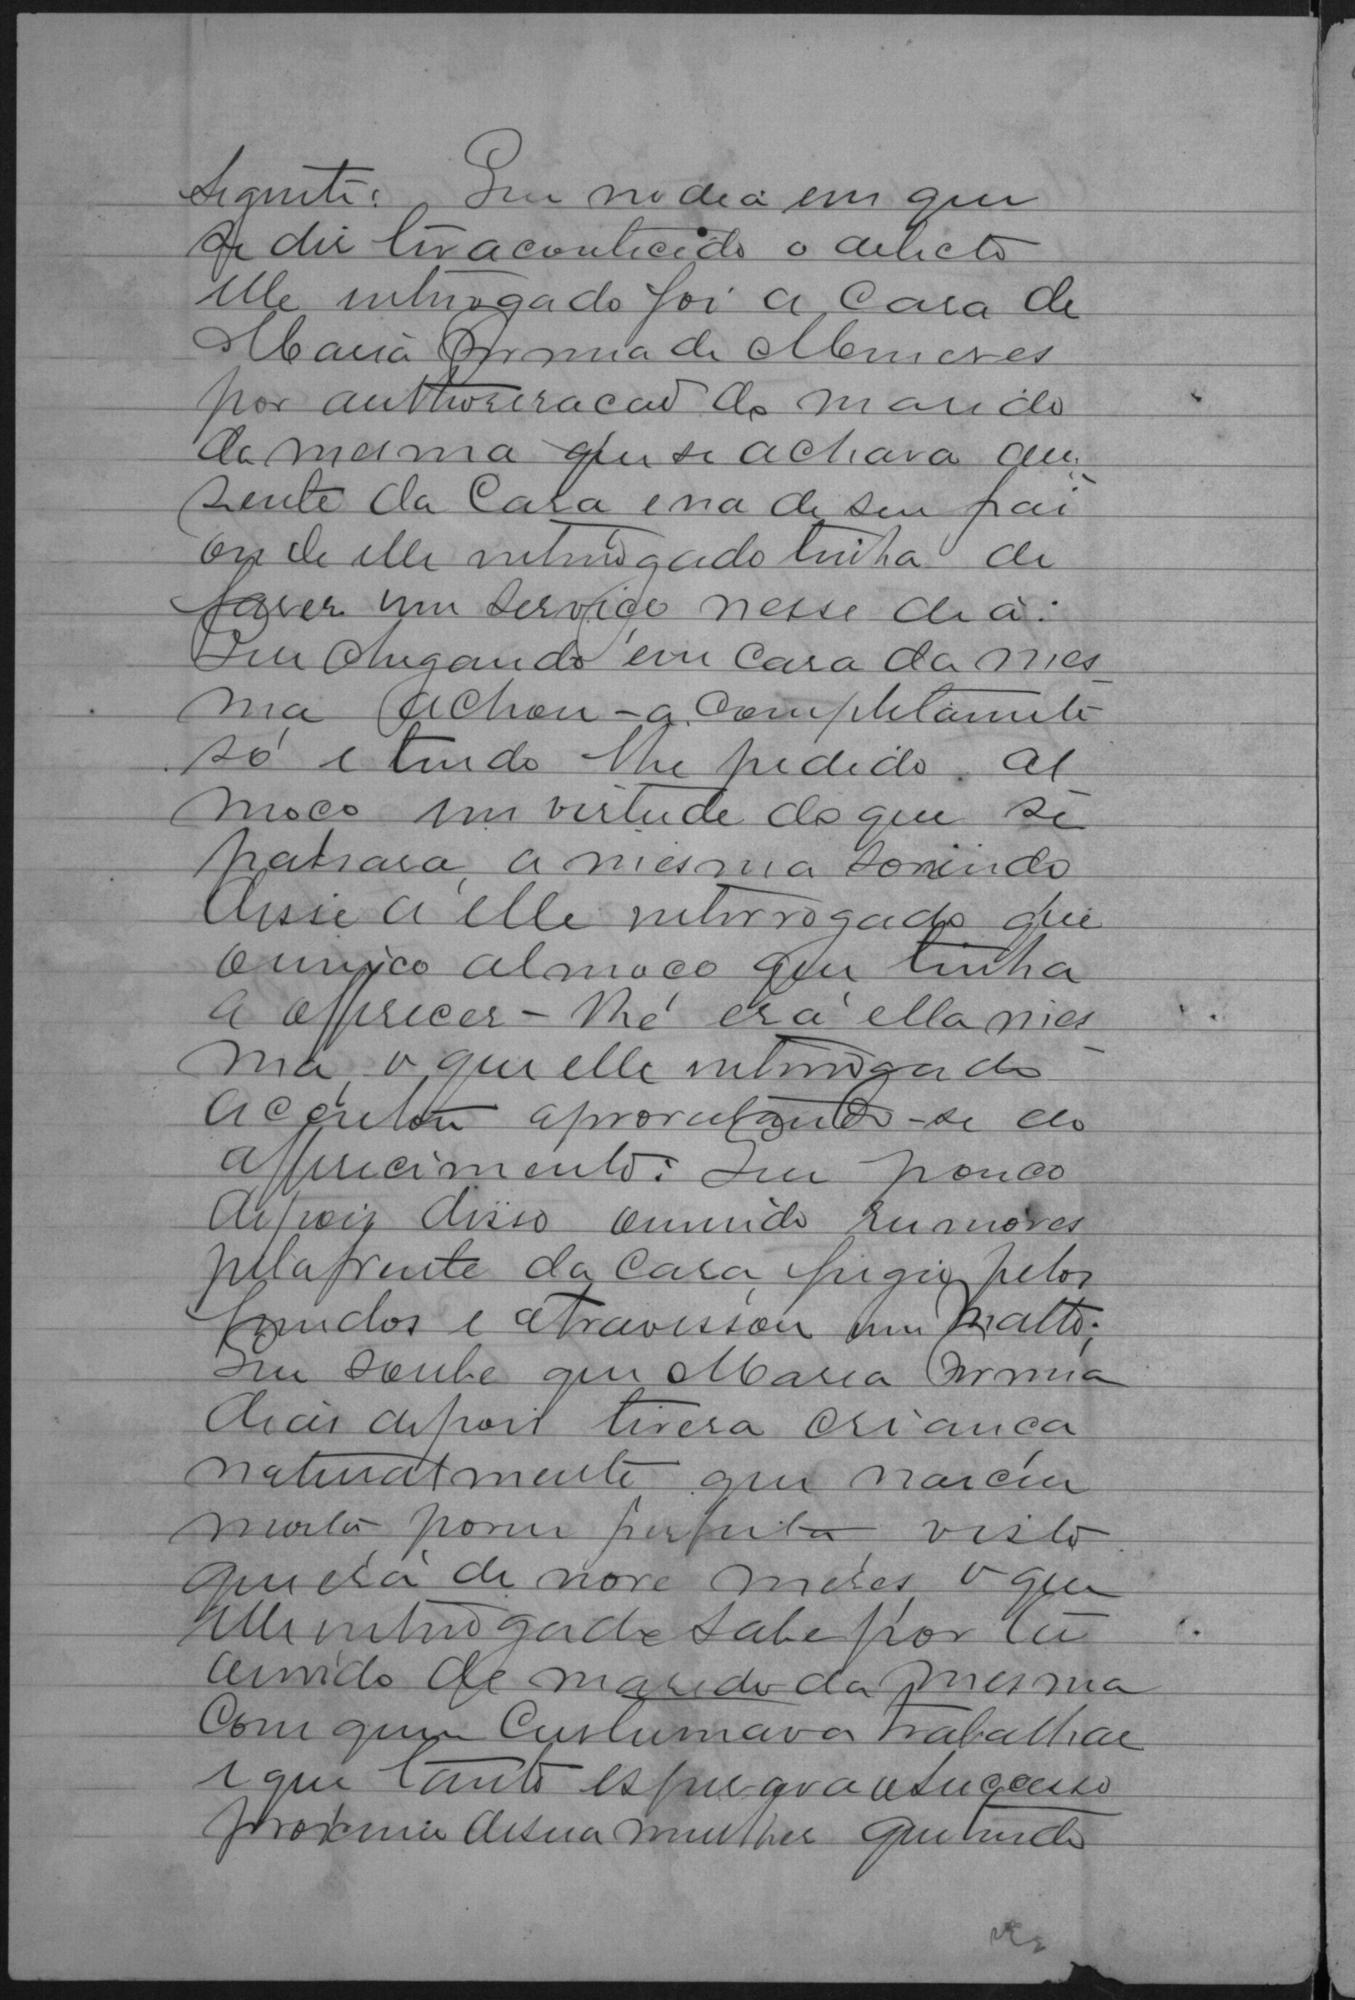 seguinte: Que no dia em que
se diz ter acontecido o delicto
elle interrogado foi a casa de
Maria Firmia de Menezes
por authorisacaõ do marido
da mesma que se achava au-
sente da Casa e na de seu pai
onde elle interrogado tinha de
fazer um serviço nesse dia:
Que chegando em casa da mes-
ma achou-a completamente
só e tendo lhe pedido al
moco em virtude do que se
patrasa, a mesma sorrindo
disse a elle interrogado que
o unico almoco que tinha
a offerecer-lhe era ella mes-
ma, o que elle interrogado
aceitou aproveitando-se do
offerecimento: Que pouco
depois disso ouvindo rumores
pela frente da casa, fugio pelos
fundos e atravessou um matto:
Que soube que Maria Firmia
dias depois tivera criança
naturalmente que nascêu
morta, porem perfeita, visto
que era de nove mezes, o que
elle interrogado sabe por ter
ouvido de marido da mesma
com quem custumava trabalhar
e que tanto esperava o successo
proximo de sua mulher que tendo